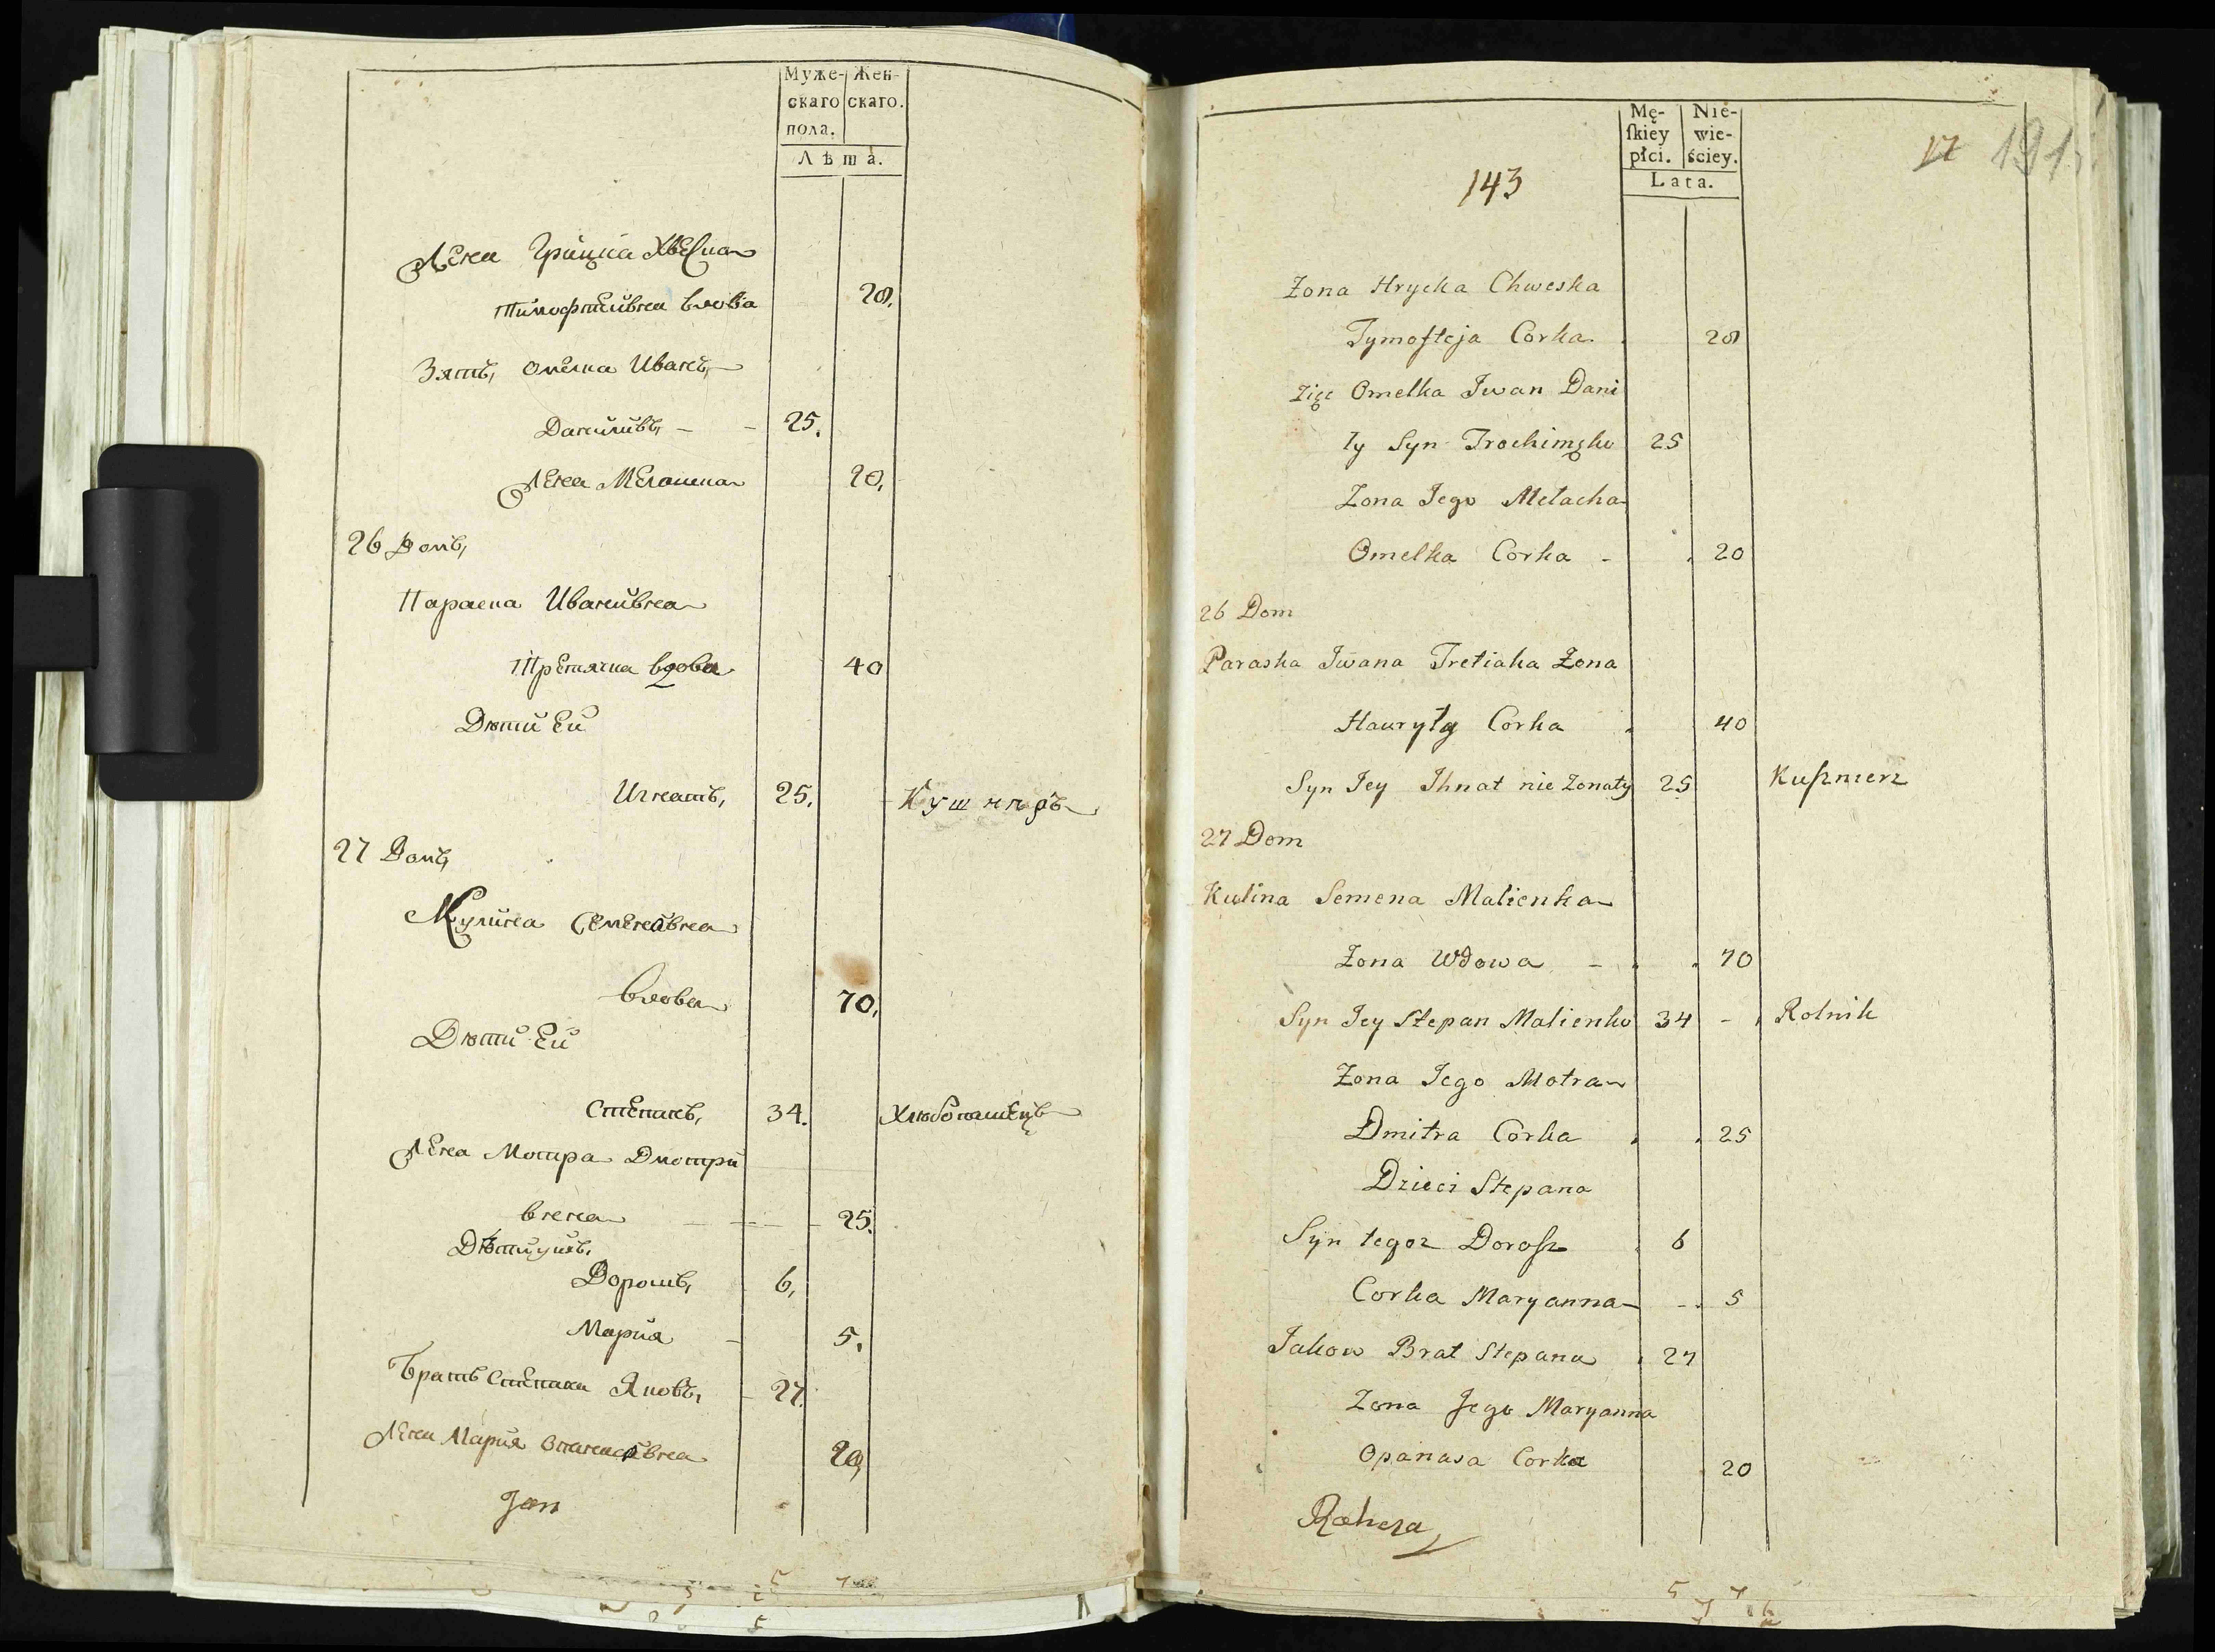 Муже- Жен-
скаго скаго.
пола.
Лѣта.
Жена Грицка Хвеска
Тимофѣивна вдова 28.
Зять Омелка Иванъ
Даниливъ - - 25.
Жена Мелашка 20.
26 Домъ
Параска Иванивна
Третячка вдова 40
Дѣти Ей
Игнатъ, 25. Кушнѣръ
27 Домъ
Кулина Семенивна
вдова 70.
Дѣти Ей
Степанъ, 34. Хлѣбопашецъ
Жена Мотра Дмотри
вна 25.
Дѣти ихъ,
Дорошъ, 6,
Мария - 5.
Братъ Степана Яковъ, - 27.
Жена Мария Опанасивна 20,
Jan
Mę- Nie-
skiey wie-
płci. ściey.
Lata.
143
17 191
Zona Hrycka Chweska
Tymofteja Corka 28
Zięć Omelka Jwan Dani
ły Syn Trochimęko 25
Zona Jego Mełacha
Omelka Corka - 20
26 Dom
Paraska Jwana Tretiaka Zona
Hauryły Corka 40
Syn Jey Jhnat nie Zonaty 25 Kuszmierz
27 Dom
Kulina Semena Malienka
Zona Wdowa - 70
Syn Jey Stepan Malienko 34 - Rolnik
Zona Jego Motra
Dmitra Corka 25
Dzieci Stepana
Syn tegoz Dorosz 6
Corka Maryanna - 5
Jakow Brat Stepana 27
Zona Jego Maryanna
Opanasa Corka 20
Rakeza